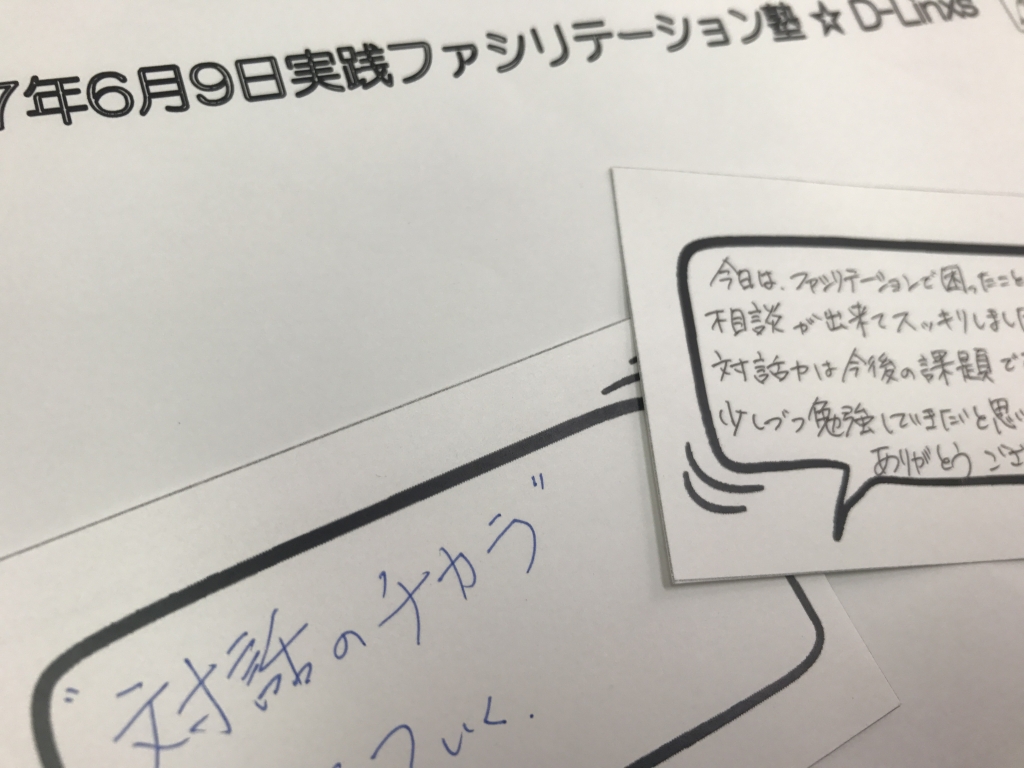 7年6月9日実践ファシリテーション塾☆D-Linxs
今日は、ファシリテーションで困ったこと
相談が出来てスッキリしまし
対話力は今後の課題で
少しづつ勉強していきたいと思い
ありがとう ござ
"対話のチカラ"
ついく.